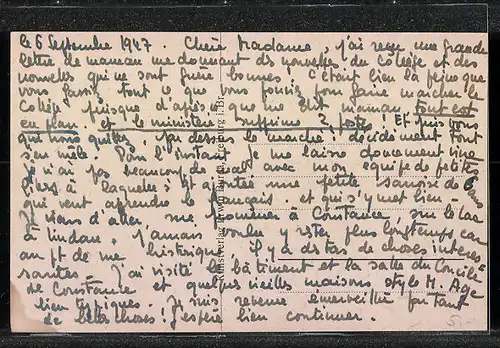 le 6 Septembre 1947. Chère Madame, j'ai reçu une grande
lettre de maman me donnant des nouvelles du collège et des
nouvelles qui ne sont guère bonnes! C'était bien la peine que
vous fassiez tout ce que vous pouviez pour faire marcher le
Collège puisque d'après ce que me dit maman, tout est
en plan. et le ministère supprime 2 postes! Et puis vous
qui nous quittez, par dessus le marché! décidément tout
s'en mêle. Pour l'instant je me laisse doucement vivre
je n'ai pas beaucoup de mal avec mon équipe de petites
filles à laquelle s'est ajoutée une petite sarroise de 6 ans
qui veut apprendre le français et qui s'y met bien -
Je viens d'aller me promener à Constance, sur le lac
à Lindau, j'aurais voulu y rester plus longtemps car
au pt de vue historique, il y a des tas de choses intéres-
santes - J'ai visité le bâtiment et la salle du Concile
de Constance et quelques vieilles maisons style M. Age
bien typiques. Je suis revenue émerveillée par tant
de belles choses! J'espère bien continuer.
5.-